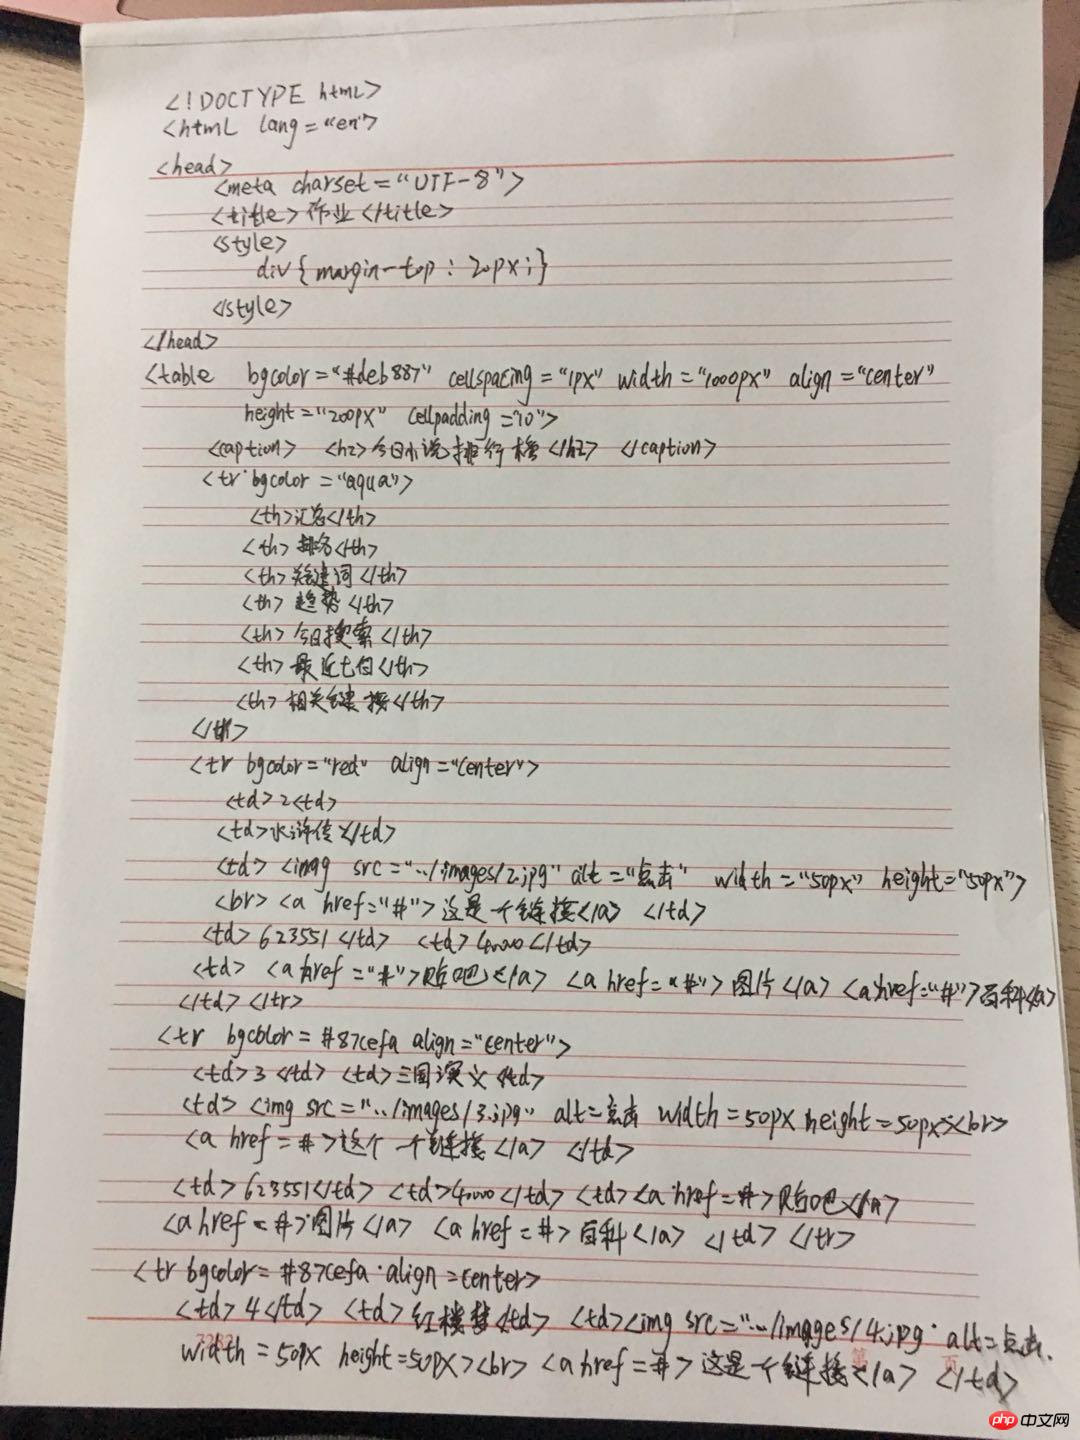 <!DOCTYPE html>
<html lang="en">
<head>
<meta charset="UTF-8">
<title>作业</title>
<style>
div{margin-top:20px;}
</style>
</head>
<table bgcolor="#deb887" cellspacing="1px" width="1000px" align="center"
height="200px" cellpadding="10">
<caption> <h2>今日小说排行榜</h2> </caption>
<tr bgcolor="aqua">
<th>汇总</th>
<th>排名</th>
<th>关键词</th>
<th>趋势</th>
<th>今日搜索</th>
<th>最近七日</th>
<th>相关链接</th>
</tr>
<tr bgcolor="red" align="center">
<td>2<td>
<td>水浒传</td>
<td> <img src="../images/2.jpg" alt="点击" width="50px" height="50px">
 <a href="#">这是一个链接</a> </td>
<td>623551</td> <td>40000</td>
<td> <a href="#">贴吧</a> <a href="#">图片</a> <a href="#">百科</a>
</td></tr>
<tr bgcolor=#87cefa align="center">
<td>3</td> <td>三国演义<td>
<td> <img src="../images/3.jpg" alt=点击 width=50px height=50px> 
<a href=#>这个一个链接</a> </td>
<td>623551</td> <td>40000</td> <td><a href=#>贴吧</a>
<a href=#>图片</a> <a href=#>百科</a> </td> </tr>
<tr bgcolor=#87cefa align=center>
<td>4</td> <td>红楼梦<td> <td><img src="../images/4.jpg" alt=点击
width=50px height=50px> <a href=#>这是一个链接</a> </td>
第 页
php 中文网